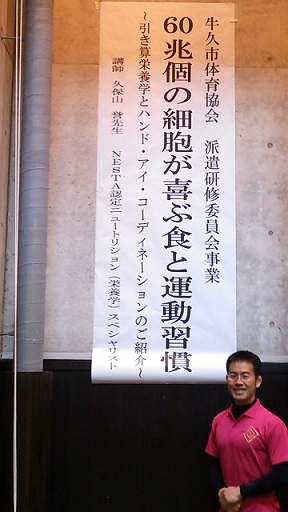 牛久市体育協会 派遣研修委員会事業
60兆個の細胞が喜ぶ食と運動習慣
～引き算栄養学とハンド・アイ・コーディネーションのご紹介～
講師 久保山 誉先生 NESTA認定ニュートリション（栄養学）スペシャリスト